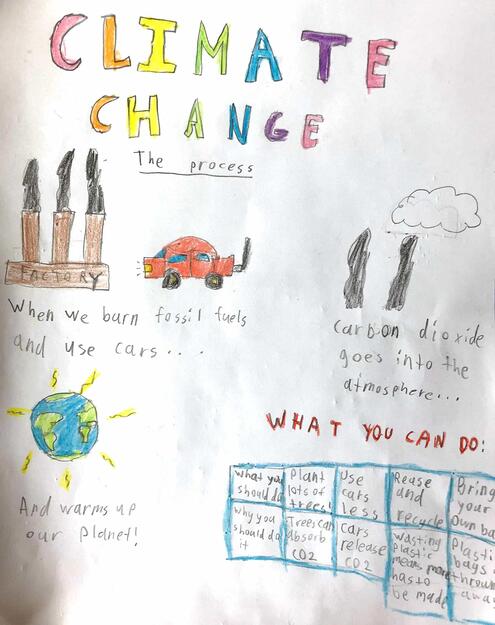 CLIMATE
CHANGE
The process
FACTORY
When we burn fossil fuels
and use cars....
carbon dioxide
goes into the
atmosphere...
And warms up
our planet!
WHAT YOU CAN DO:
what you
should do
Plant
lots of
trees!
Use
cars
less
Rease
and
recycle
Bring
your
own ba
why you
should do
it
Trees can
absorb
CO2
Cars
release
CO2
wasting
plastic
means more
has to
be made
Plasti
bags
thrown
away